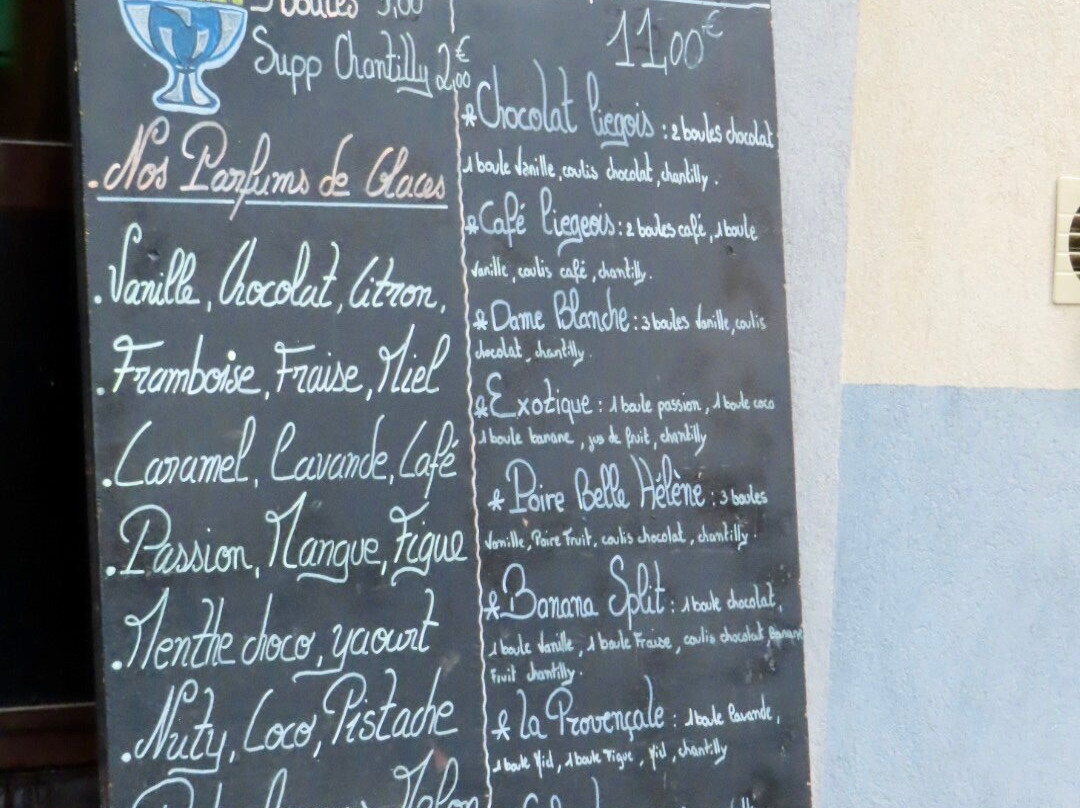 Boules 5,00
Supp Chantilly 2,00€
Nos Parfums de Glaces
.Vanille, Chocolat, Citron,
.Framboise, Fraise, Miel
.Caramel, Lavande, Café
.Passion, Mangue, Figue
.Menthe choco, yaourt
.Nuty, Coco, Pistache
Melon
11,00€
*Chocolat liegois : 2 boules chocolat
1 boule Vanille, coulis chocolat, chantilly.
*Café liegeois : 2 boules café, 1 boule
Vanille, coulis café, chantilly.
*Dame Blanche : 3 boules Vanille, coulis
chocolat, chantilly.
*Exotique : 1 boule passion, 1 boule coco
1 boule banane, jus de fruit, chantilly
*Poire Belle Hélène : 3 boules
Vanille, Poire Fruit, coulis chocolat, chantilly.
*Banana Split : 1 boule chocolat,
1 boule Vanille, 1 boule Fraise, coulis chocolat Banane
Fruit chantilly.
*la Provençale : 1 boule lavande,
1 boule Miel, 1 boule Figue, Miel, chantilly